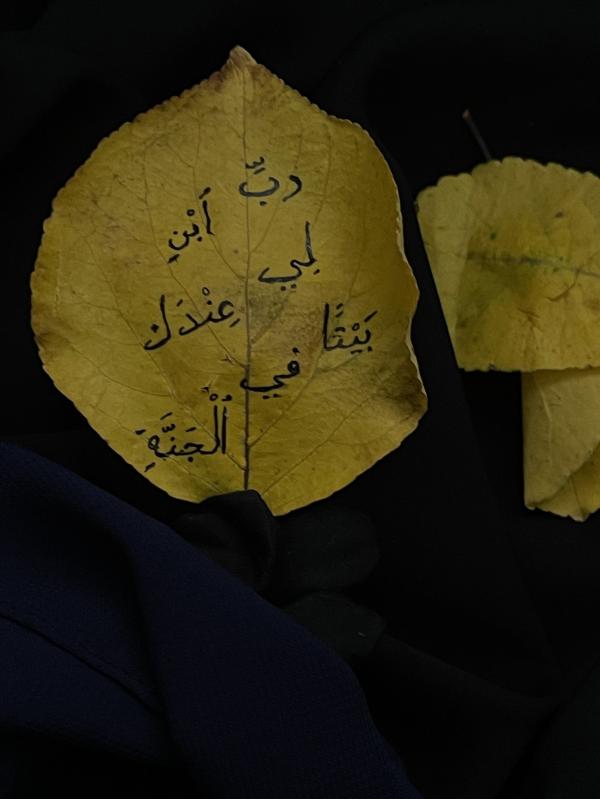 رَبِّ
أَبْنِ
لِي
عِنْدَكَ
بَيْتًا
فِي
ٱلْجَنَّةِ